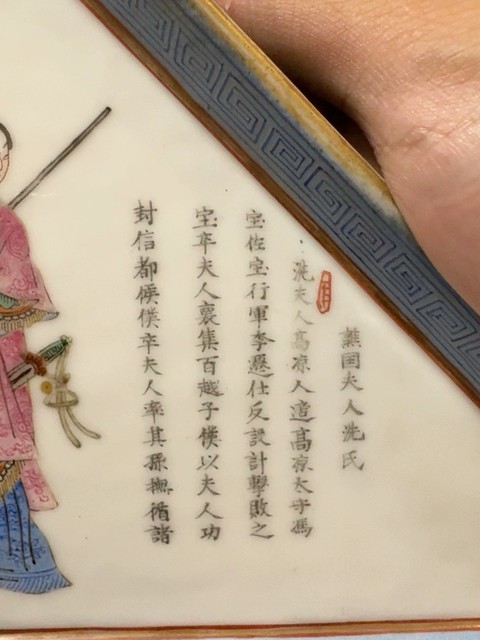 譙国夫人洗氏
洗夫人高凉人適高凉太守馮
宝佐宝行軍李遷仕反設計擊敗之
宝卒夫人裹集百越子僕以夫人功
封信都侯僕卒夫人率其孫撫循諸